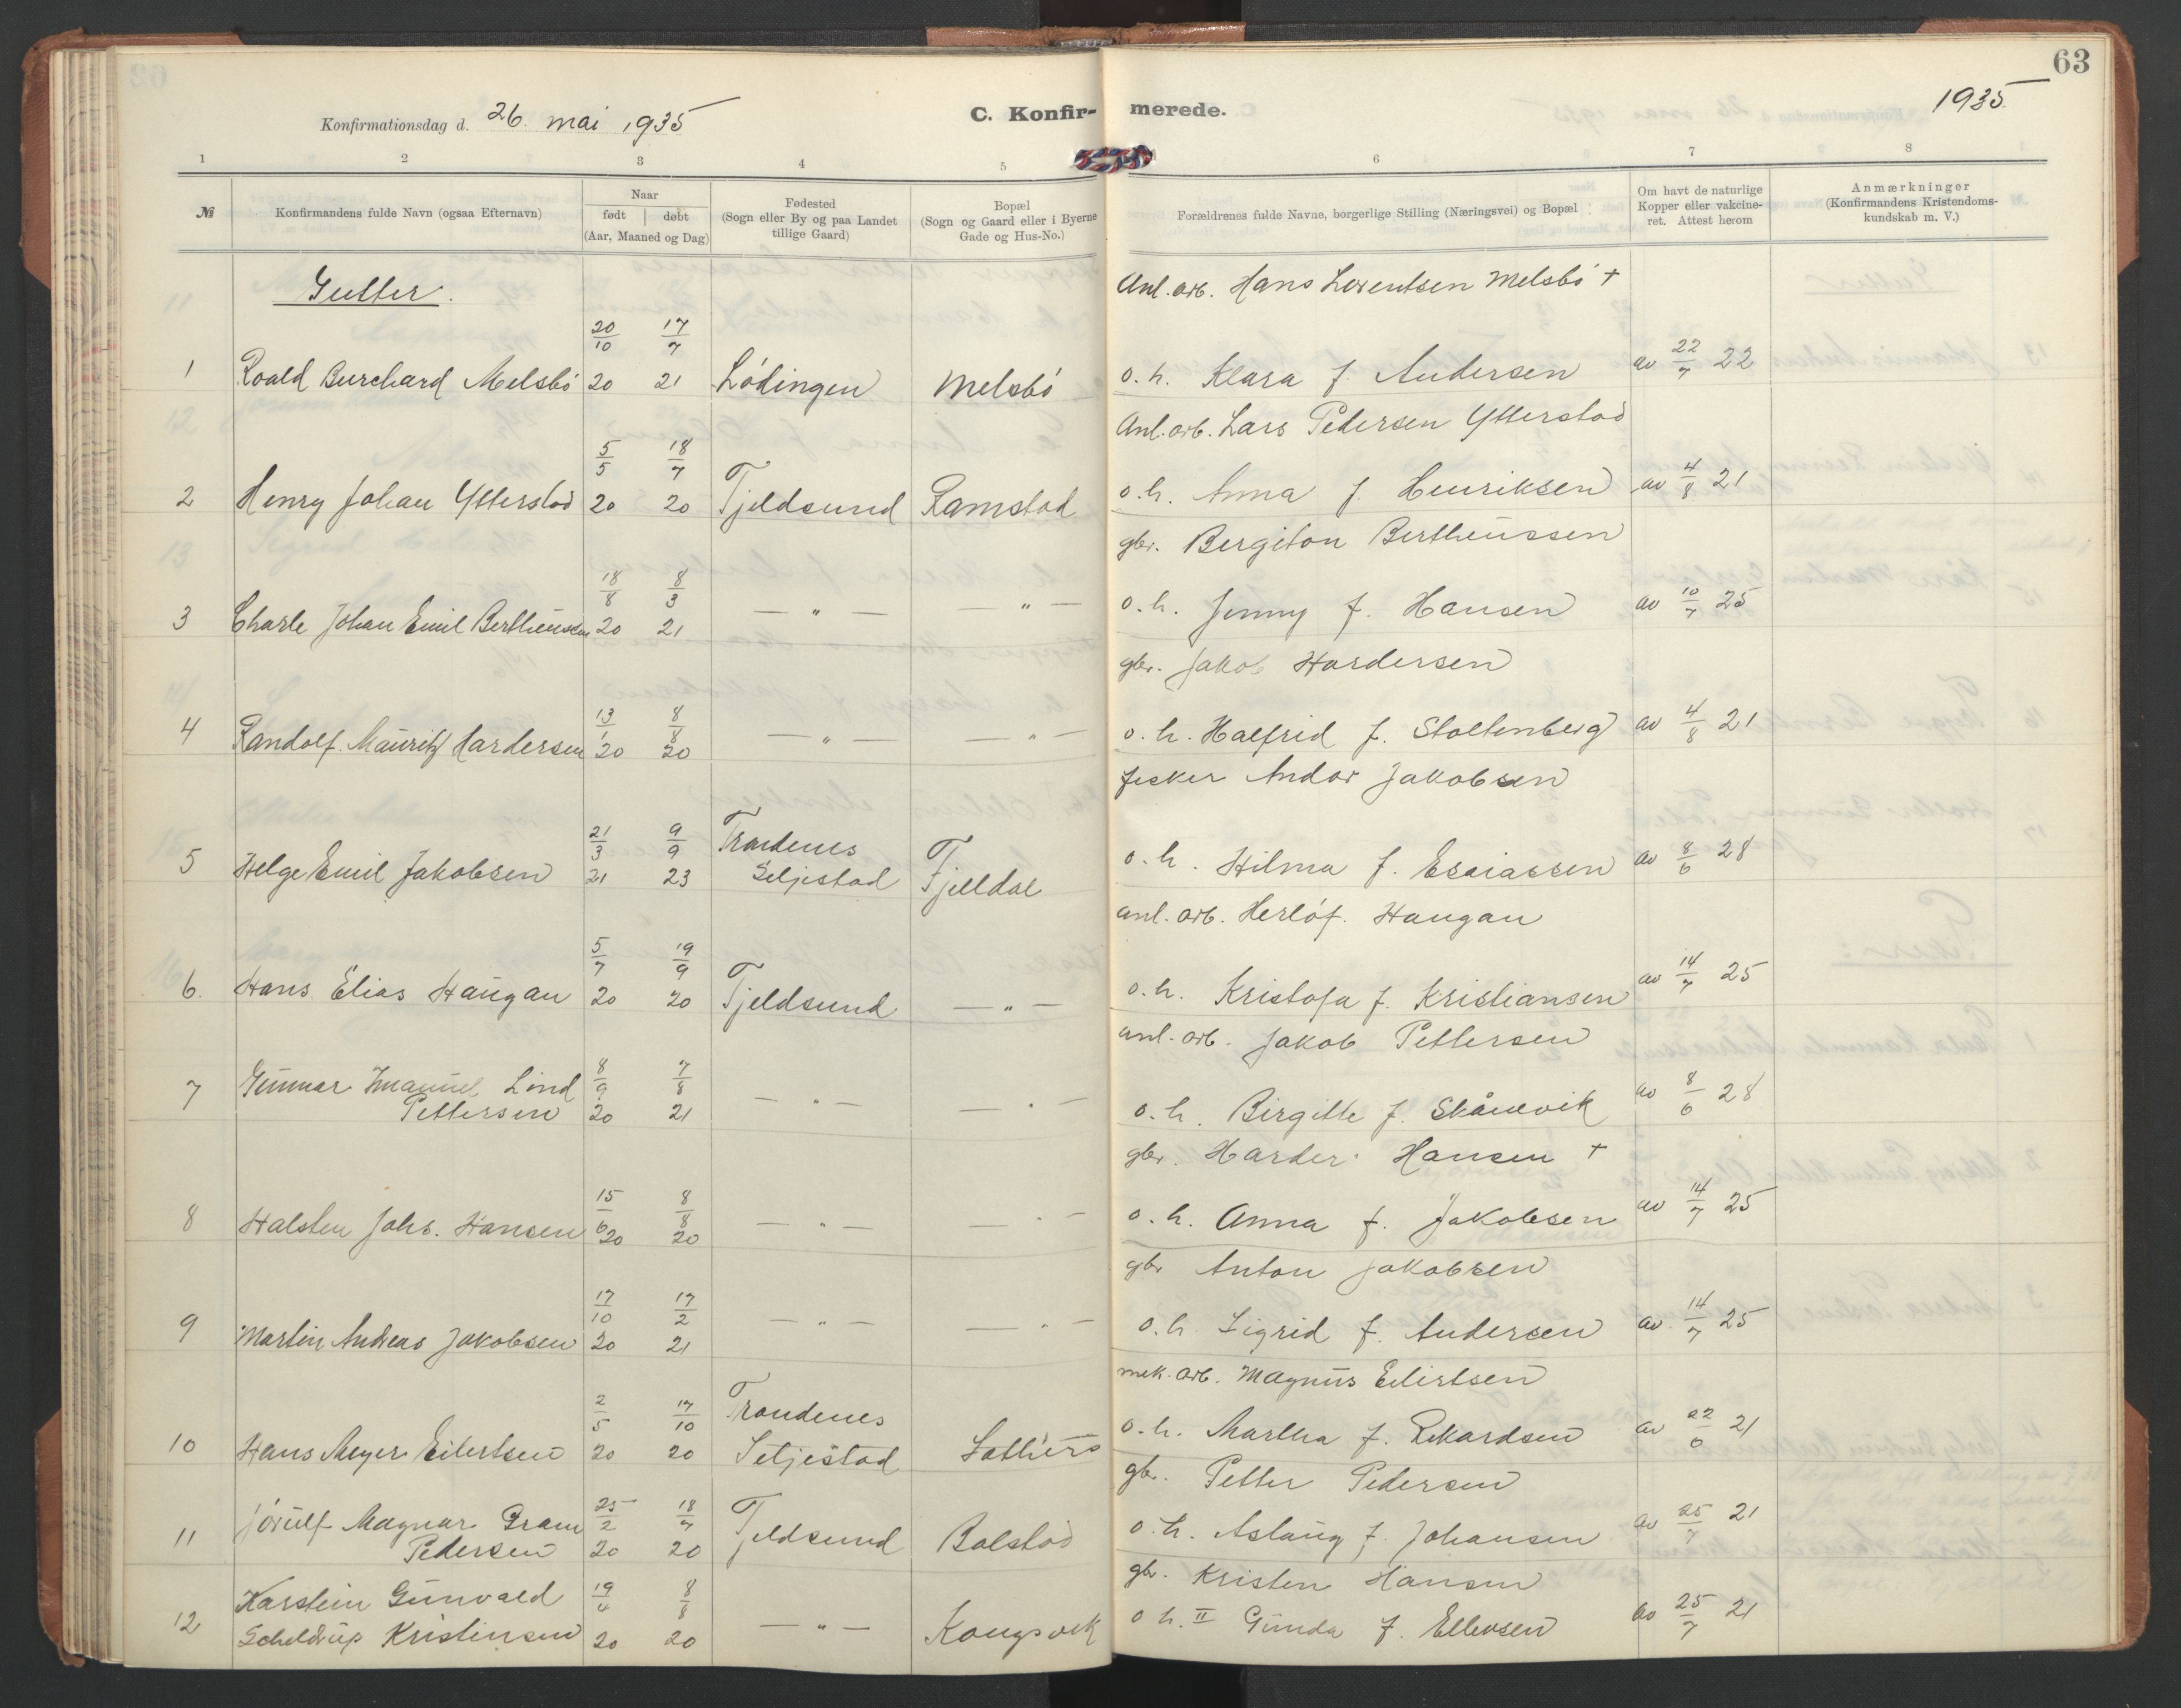 63
Konfirmationsdag d. 26. mai 1935
C. Konfir- merede.
1935
1 2 3 4 5 6 7 8
№
Konfirmandens fulde Navn (ogsaa Efternavn)
Naar
født døbt
(Aar, Maaned og Dag)
Fødested
(Sogn eller By og paa Landet
tillige Gaard)
Bopæl
(Sogn og Gaard eller i Byerne
Gade og Hus-No.)
Forældrenes fulde Navne, borgerlige Stilling (Næringsvei) og Bopæl
Om havt de naturlige
Kopper eller vakcine-
ret. Attest herom
Anmærkninger
(Konfirmandens Kristendoms-
kundskab m. V.)
Gutter.
Anl. arb. Hans Lorentsen Melsbó +
20/10 17/7
1 Roald Burchard Melsbó 20 21 Lódingen Melsbó o. h. Klara f. Andersen av 22/7 22
Anl. arb. Lars Pedersen Ytterstad
5/5 18/7
2 Henry Johan Ytterstad 20 20 Tjeldsund Ramstad o. h. Anna f. Henriksen av 4/8 21
gbr. Bergiton Bertheussen
18/8 8/3
3 Charle Johan Emil Bertheussen 20 21 — " — " — o. h. Jenny f. Hansen av 10/7 25
gbr. Jakob Hardersen
13/1 8/8
4 Randolf Mauritz Hardersen 20 20 — " — — " — o. h. Halfrid f. Stoltenberg av 4/8 21
fisker Andor Jakobsen
21/3 9/9 Trondenes
5 Helge Emil Jakobsen 21 23 Seljestad Fjelldal o. h. Hilma f. Esaiassen av 8/6 28
anl. arb. Herlóf Haugan
5/7 19/9
6. Hans Elias Haugan 20 20 Tjeldsund — " — o. h. Kristofa f. Kristiansen av 14/7 25
anl. arb. Jakob Pettersen
7 Gunnar Imanuel Lind 8/9 7/8
Pettersen 20 21 — " — — " — o. h. Birgitte f. Skånevik av 8/6 28
gbr. Harder Hansen +
15/6 8/8
8 Halsten Johs. Hansen 20 20 — " — — " — o. h. Anna f. Jakobsen av 14/7 25
gbr Anton Jakobsen
17/10 17/2
9 Martin Andreas Jakobsen 20 21 — " — — " — o. h. Sigrid f. Andersen av 14/7 25
mek. arb. Magnus Eilertsen
2/5 17/10 Trondenes
10 Hans Meyer Eilertsen 20 20 Seljestad o. h. Martha f. Rikardsen av 22/6 21
gbr. Petter Pedersen
11 Jórulf Magnar Gram 25/2 18/7
Pedersen 20 20 Tjeldsund Balstad o. h. Aslaug f. Johansen av 25/7 21
gbr. Kristen Hansen
12 Karstein Gunvald 19/4 8/8
Scheldrup Kristensen 20 20 — " — Kongsvik o h. II Gunda f. Ellevsen av 25/7 21